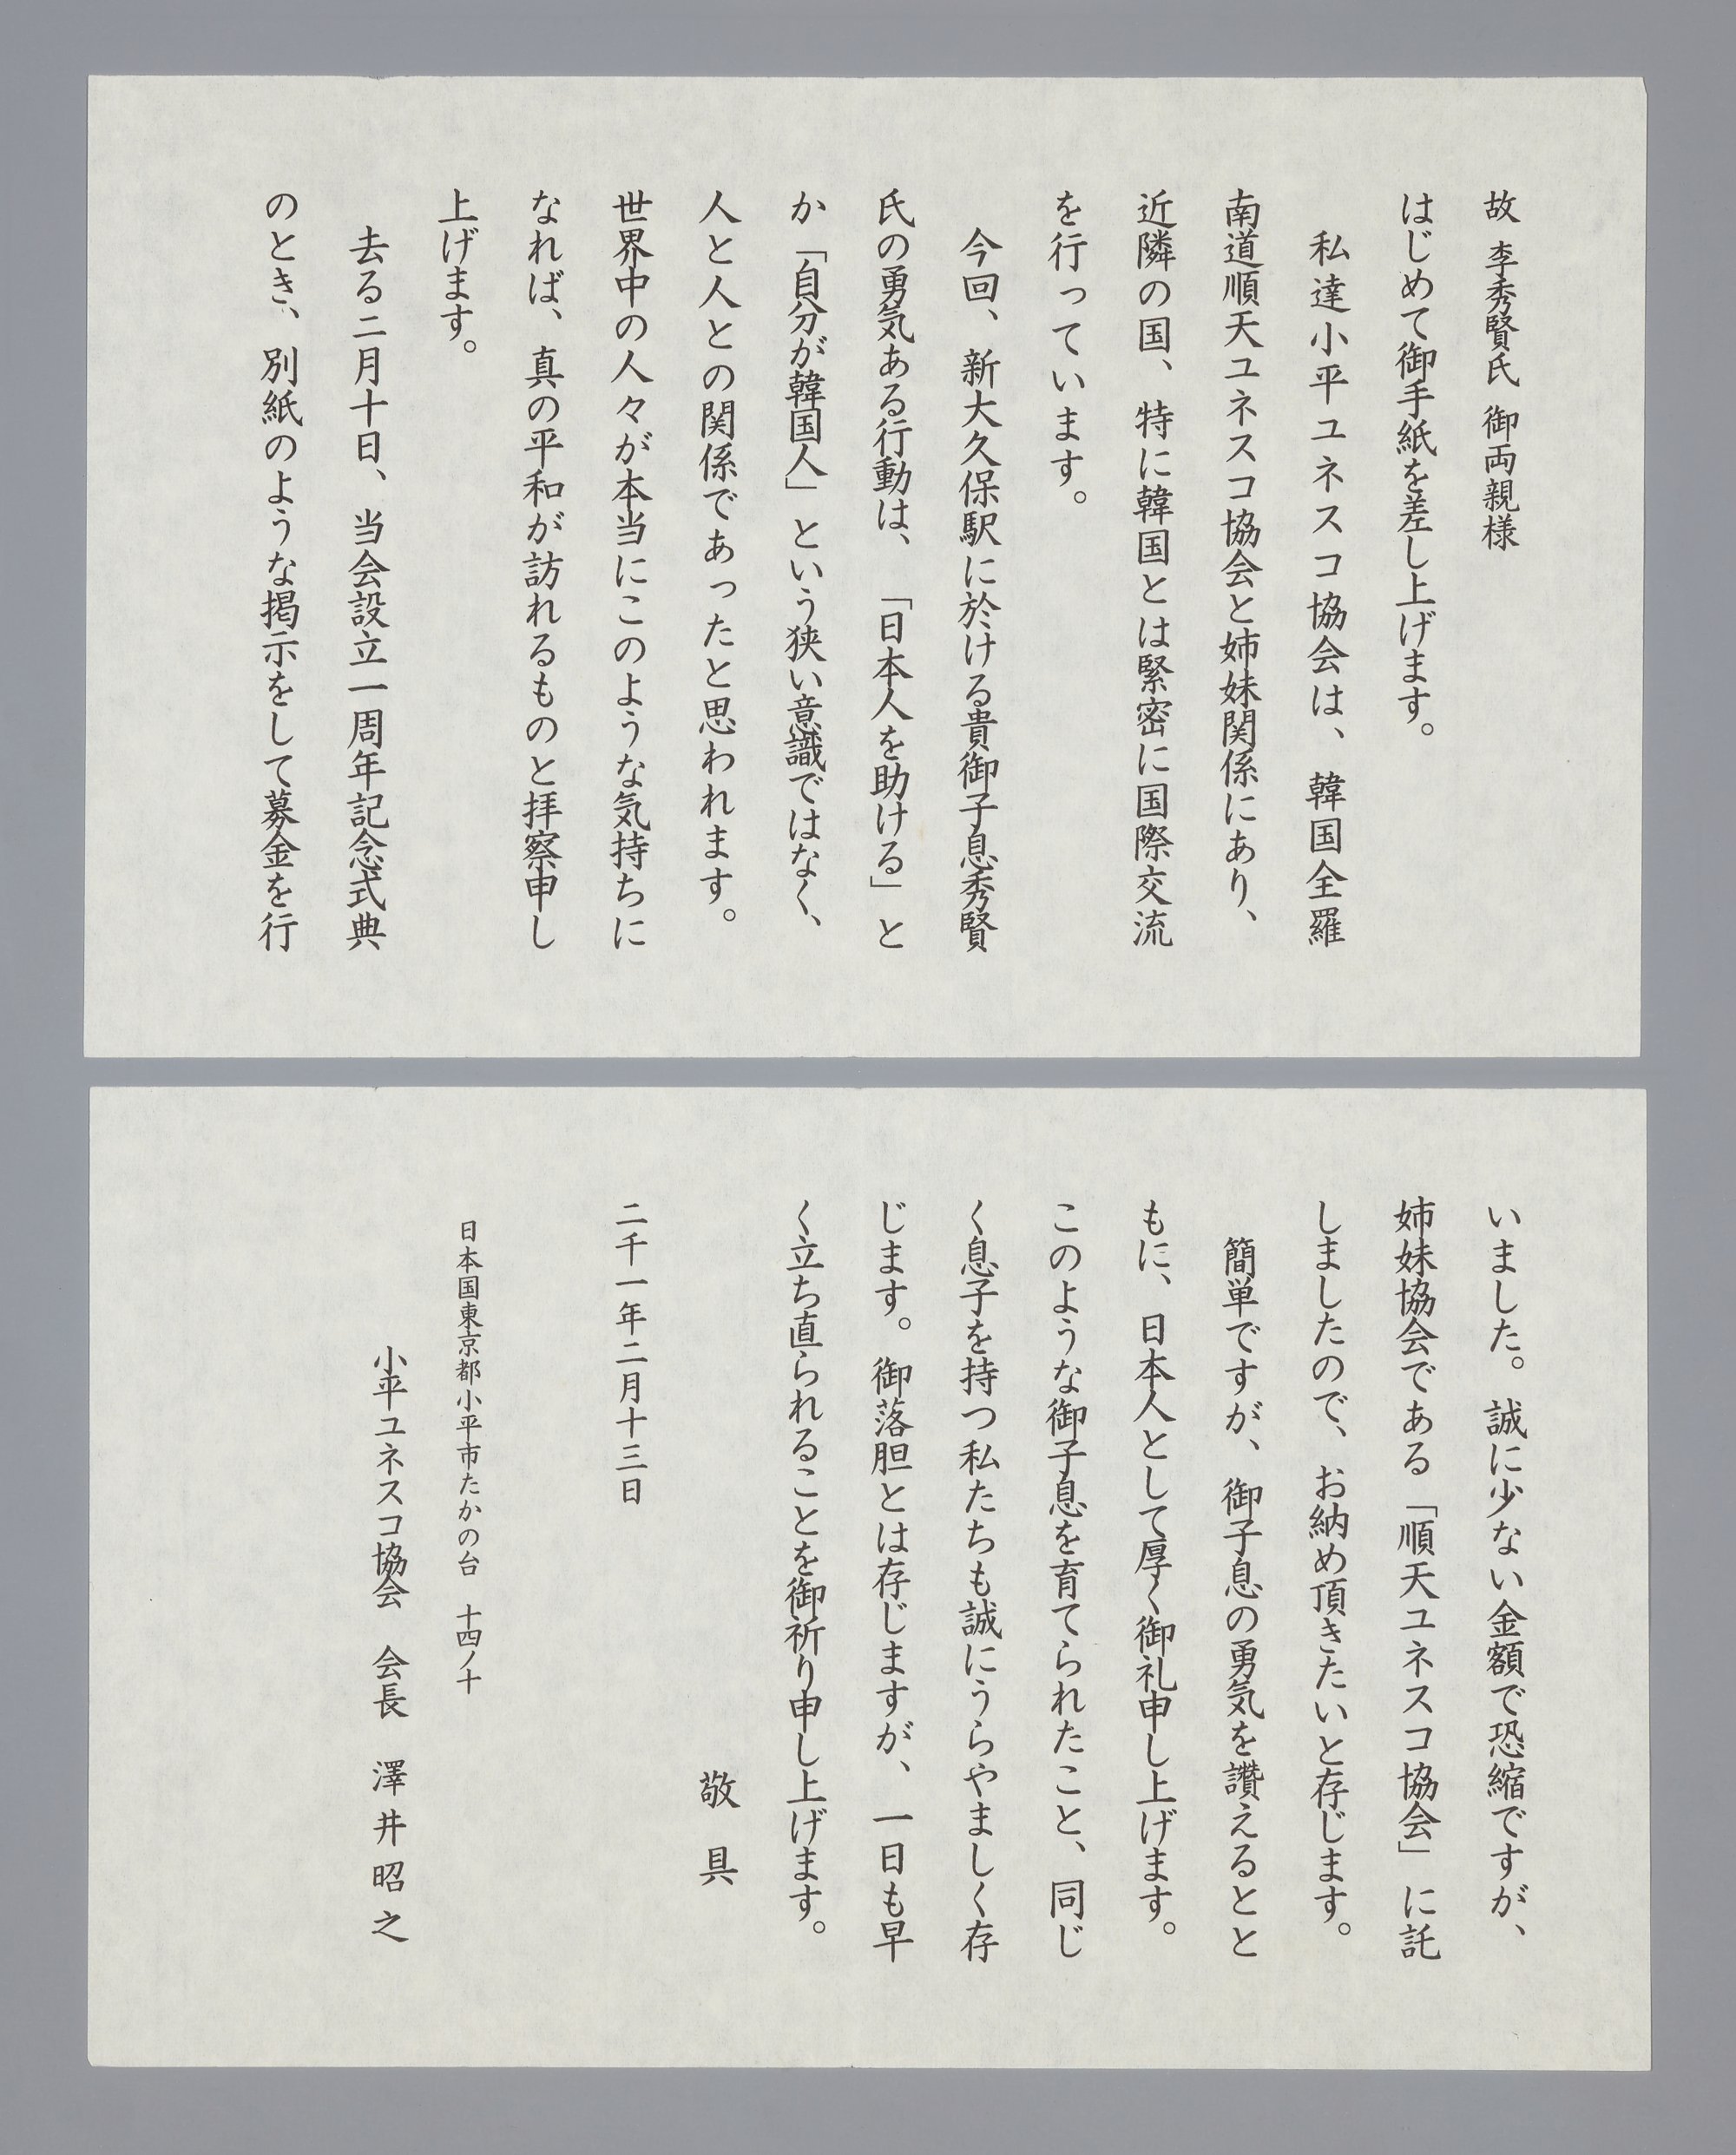 故 李秀賢氏 御両親様
はじめて御手紙を差し上げます。
私達小平ユネスコ協会は、韓国全羅
南道順天ユネスコ協会と姉妹関係にあり、
近隣の国、特に韓国とは緊密に国際交流
を行っています。
今回、新大久保駅に於ける貴御子息秀賢
氏の勇気ある行動は、「日本人を助ける」と
か「自分が韓国人」という狭い意識ではなく、
人と人との関係であったと思われます。
世界中の人々が本当にこのような気持ちに
なれば、真の平和が訪れるものと拝察申し
上げます。
去る二月十日、当会設立一周年記念式典
のとき、別紙のような掲示をして募金を行
いました。誠に少ない金額で恐縮ですが、
姉妹協会である「順天ユネスコ協会」に託
しましたので、お納め頂きたいと存じます。
簡単ですが、御子息の勇気を讃えるとと
もに、日本人として厚く御礼申し上げます。
このような御子息を育てられたこと、同じ
く息子を持つ私たちも誠にうらやましく存
じます。御落胆とは存じますが、一日も早
く立ち直られることを御祈り申し上げます。
敬具
二千一年二月十三日
日本国東京都小平市たかの台 十四ノ十
小平ユネスコ協会 会長 澤井昭之